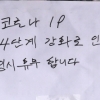 코로나 19
4단계 강화로 인
임시휴무 합니다